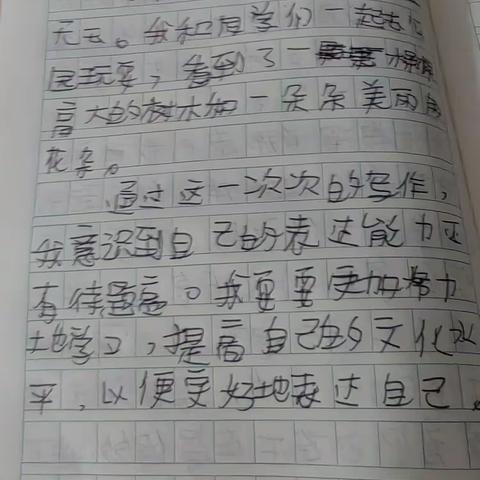 无云。我和同学们一起去公
园玩耍，看到了一棵棵
高大的树木和一朵朵美丽的
花朵。
通过这一次次的写作，
我意识到自己的表达能力还
有待提高。我更要更加努力
地学习，提高自己的文化水
平，以便更好地表达自己。